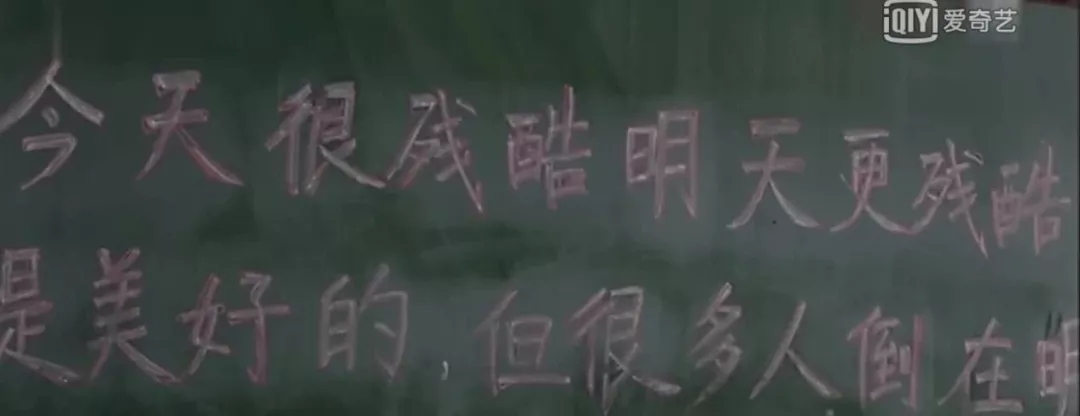 iQIYI 爱奇艺
今天很残酷明天更残酷
是美好的,但很多人倒在明